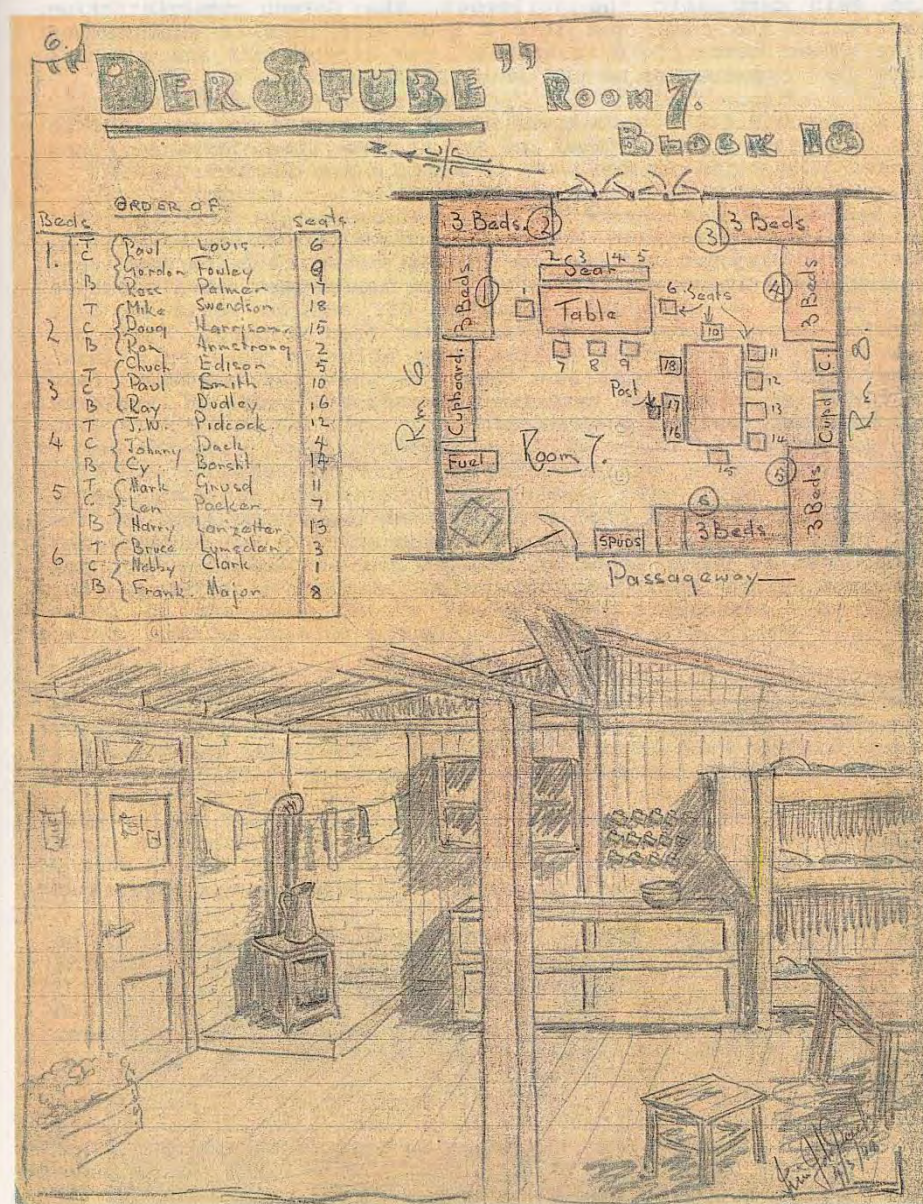 6.
"DER STUBE" ROOM 7.
BLOCK 18
N
ORDER OF
Beds seats
1. T { Paul Louis 6
C { Gordon Fowley 9
B { Ross Palmer 17
2 T { Mike Swendson 18
C { Doug Harrison. 15
B { Ron Armstrong 2
3 T { Chuck Edison 5
C { Paul Smith 10
B { Ray Dudley 16
4 T { J.W. Pidcock 12
C { Johnny Dack 4
B { Cy Borsht 14
5 T { Mark Gnusd 11
C { Len Packer. 7
B { Harry 13
6 T { Bruce Lumsden 3
C { Nebby Clark 1
B { Frank. Major 8
3 Beds. 2
3 3 Beds
3 Beds
1
4 3 Beds
2 3 4 5
Seat
Table
1
6 Seats
7 8 9
10
11
12
13
14
15
16
17
18
Post
Cupboard.
Cupd C.
Fuel
Room 7.
Rm 6.
Rm 8.
5 3 Beds
6 3 Beds
SPUDS
Passageway